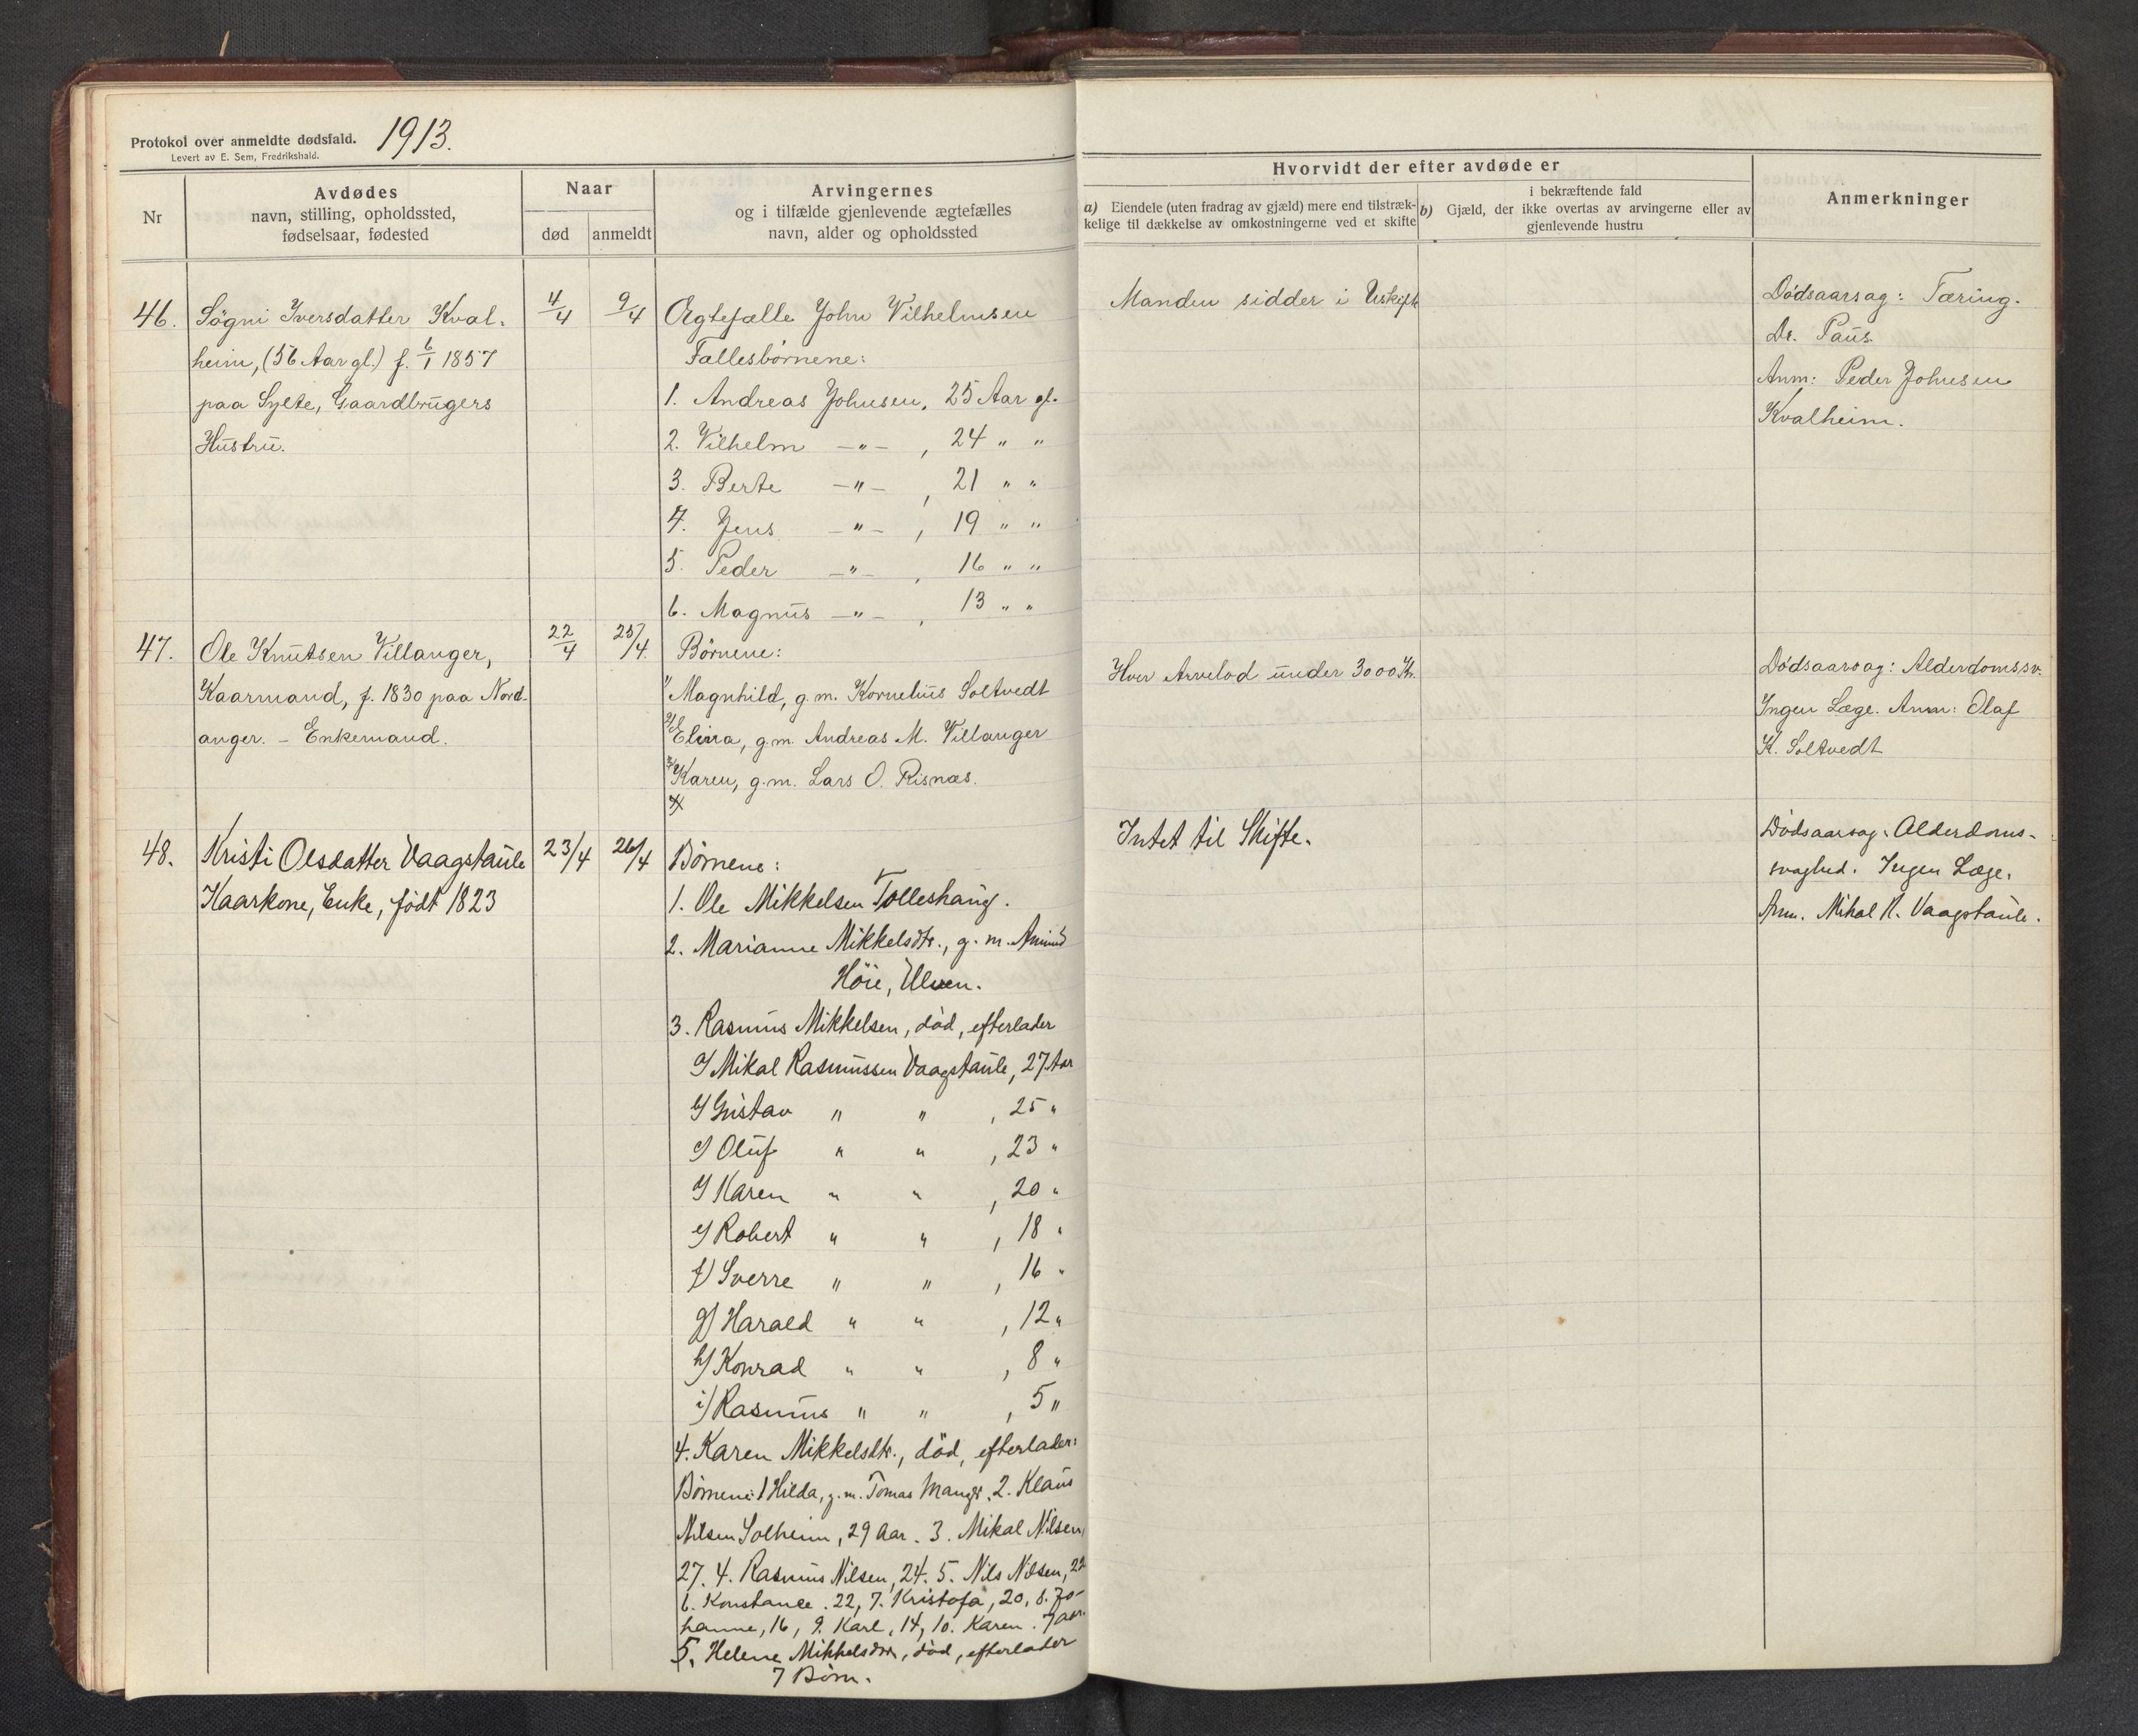 Protokol over anmeldte dødsfald. 1913.
Levert av E. Sem, Fredrikshald.
Nr
Avdødes
navn, stilling, opholdssted,
fødselsaar, fødested
Naar
død
anmeldt
Arvingernes
og i tilfælde gjenlevende ægtefælles
navn, alder og opholdssted
Hvorvidt der efter avdøde er
a) Eiendele (uten fradrag av gjæld) mere end tilstræk-
kelige til dækkelse av omkostningerne ved et skifte
i bekræftende fald
b) Gjæld, der ikke overtas av arvingerne eller av
gjenlevende hustru
Anmerkninger
46.
Søgni Iversdatter Kval-
heim, (56 Aar gl.) f. 6/1 1857
paa Sylte, Gaardbrugers
Hustru.
4/4
9/4
Ægtefælle John Vilhelmsen
Fællesbørnene:
1. Andreas Johnsen, 25 Aar gl.
2. Vilhelm —"— , 24 " "
3. Berte —"— , 21 " "
4. Jens —"— , 19 " "
5. Peder —"— , 16 " "
6. Magnus —"— , 13 " "
Manden sidder i Uskifte
Dødsaarsag: Tæring.
Dr. Paus.
Anm: Peder Johnsen
Kvalheim.
47.
Ole Knutsen Villanger,
Kaarmand, f. 1830 paa Nord-
anger. – Enkemand.
22/4
25/4.
Børnene:
1/ Magnhild, g.m. Kornelius Soltvedt
2/ Elina, g.m. Andreas M. Villanger
3/ Karen, g.m. Lars O. Risnæs.
Hver Arvelod under 3000 Kr.
Dødsaarsag: Alderdomssv.
Ingen Læge. Anm: Olaf
K. Soltvedt
48.
Kristi Olsdatter Vaagstaule
Kaarkone, Enke, født 1823
23/4
26/4
Børnene:
1. Ole Mikkelsen Tolleshaug.
2. Marianne Mikkelsdtr., g. m. Amund
Höie, Ulven.
3. Rasmus Mikkelsen, död, efterlader
a/ Mikal Rasmussen Vaagstaule, 27 Aar
b/ Gustav " " , 25 "
c/ Oluf " " , 23 "
d/ Karen " " , 20 "
e/ Robert " " , 18 "
f/ Sverre " " , 16 "
g/ Harald " " , 12 "
h/ Konrad " " , 8 "
i/ Rasmus " " , 5 "
4. Karen Mikkelsdtr., död, efterlader:
Børnene: 1 Hilda, g.m. Tomas Manger, 2. Klaus
Nilsen Solheim, 29 Aar. 3. Mikal Nilsen,
27. 4. Rasmus Nilsen, 24. 5. Nils Nilsen,
6. Konstance. 22, 7. Kristofa, 20, 8. Jo-
hanne, 16, 9. Karl, 14, 10. Karen. 7 aar.
5. Helene Mikkelsdtr, död, efterlader
7 Børn.
Intet til Skifte.
Dødsaarsag: Alderdoms-
svaghed. Ingen Læge.
Anm. Mikal R. Vaagstaule.